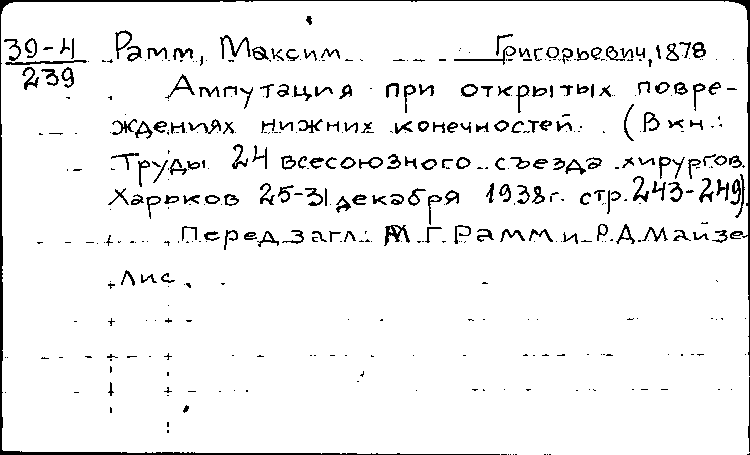 39-4 Рамм, Максим Григорьевич, 1878
239
Ампутация при открытых повре-
ждениях нижних конечностей. (В кн.:
Труды 24 всесоюзного съезда хирургов.
Харьков 25-31 декабря 1938 г. стр. 243-249).
Перед загл.: М.Г. Рамм и Р.Д. Майзе
Лис.